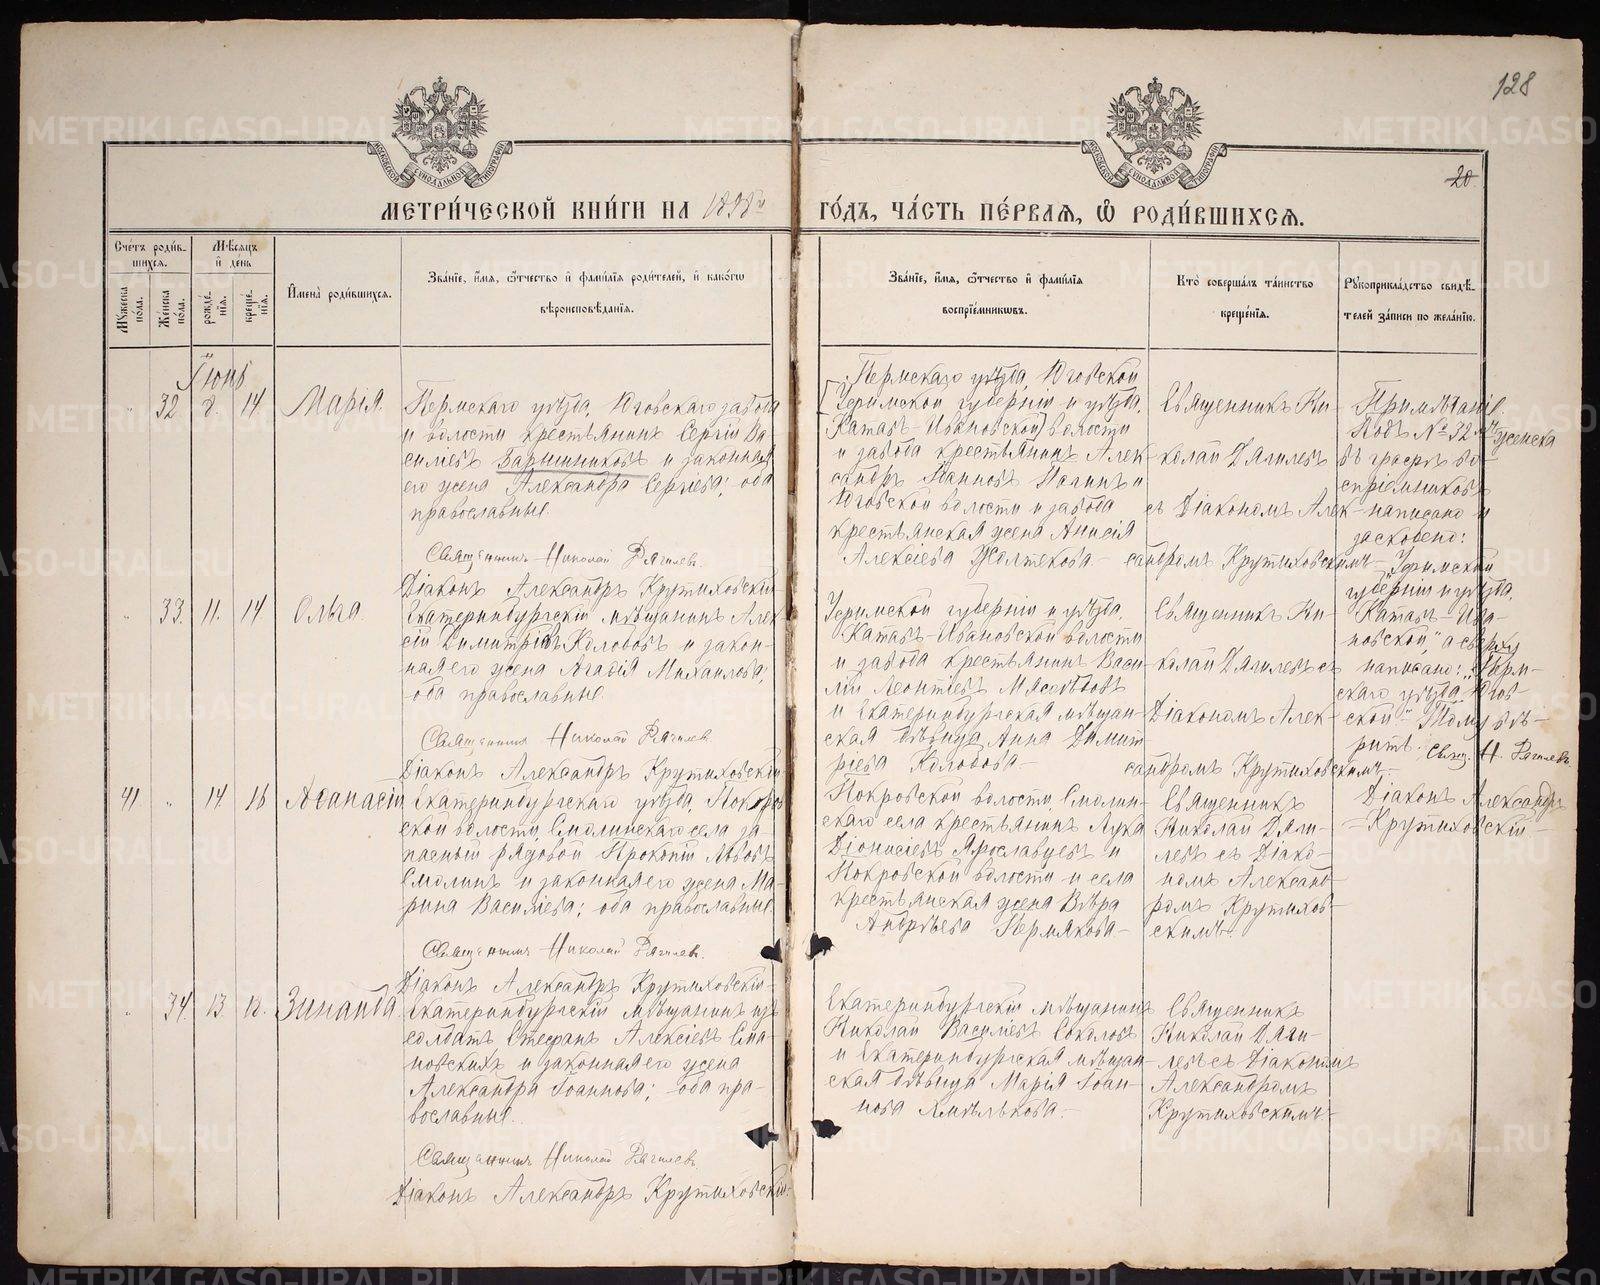 128
20
МОСКОВСКОЙ СѴНОДАЛЬНОЙ ТИПОГРАФІИ
МОСКОВСКОЙ СѴНОДАЛЬНОЙ ТИПОГРАФІИ
МЕТРИ́ЧЕСКОЙ КНИ́ГИ НА 1898й ГО́ДЪ, ЧА́СТЬ ПЕ́РВАѦ, Ѽ РОДИ́ВШИХСѦ.
Сче́тъ роди́в-
шихсѧ.
Мꙋ́жеска по́ла.
Же́нска по́ла.
Мѣ́сѧцъ и҆ де́нь
рожде́-
нїѧ.
креще́-
нїѧ.
И҆мена̀ роди́вшихсѧ.
Зва́нїе, и҆́мѧ, ѻ҆́тчество и҆ фами́лїѧ роди́телей, и҆ како́гѡ
вѣроисповѣ́данїѧ.
Зва́нїе, и҆́мѧ, ѻ҆́тчество и҆ фами́лїѧ
воспрїе́мникѡвъ.
Кто̀ соверша́лъ та́инство
креще́нїѧ.
Рꙋкоприкла́дство свидѣ́-
телей за́писи по жела́нїю.
Іюнь
" 32 8. 14 Марія.
Пермскаго уѣзда, Юговскаго завода
и волости крестьянинъ Сергій Ва
сильевъ и законная
его жена Александра Сергіева; оба
православные.
Священникъ Николай Дягилевъ.
Діаконъ Александръ Крутиховскій
Пермскаго уѣзда, Юговской
[Уфимской губерніи и уѣзда,
Катавъ-Ивановской] волости
и завода крестьянинъ Алек-
сандръ Іоанновъ и
Юговской волости и завода
крестьянская жена Анисія
Алексіева Желтекова —
Священникъ Ни-
колай Дягилевъ
съ Діакономъ Алек-
сандромъ Крутиховскимъ —
Примѣчаніе.
Подъ № 32 женска
въ графѣ во-
спріемниковъ
написано и
заскоблено:
"Уфимской
губерніи и уѣзда,
Катавъ-Ива-
новской", а сверху
написано: "Перм-
скаго уѣзда Югов-
ской." Тому вѣ-
рить. Свящ. Н. Дягилевъ.
Діаконъ Александръ
— Крутиховскій —
" 33. 11. 14 Ольга.
Екатеринбургскій мѣщанинъ Алек-
сій Димитріевъ Колобовъ и закон-
ная его жена Агафія Михаилова;
оба православные
Священникъ Николай Дягилевъ
Діаконъ Александръ Крутиховскій
Уфимской губерніи и уѣзда,
Катавъ-Ивановской волости
и завода крестьянинъ Васи-
лій Леонтіевъ Мясоѣдовъ
и Екатеринбургская мѣщан-
ская дѣвица Анна Димит
ріева Колобова —
Священникъ Ни-
колай Дягилевъ съ
Діакономъ Алек-
сандромъ Крутиховскимъ.
41. " 14. 16 Аѳанасій
Екатеринбургскаго уѣзда, Покров
ской волости, Смолинскаго села за-
пасный рядовой Прокопій Львовъ
Смолинъ и законная его жена Ма-
рина Василіева; оба православные.
Священникъ Николай Дягилевъ.
Діаконъ Александръ Крутиховскій
Покровской волости Смолин-
скаго села крестьянинъ Лука
Діонисіевъ Ярославцевъ и
Покровской волости и села
крестьянская жена Вѣра
Андрѣева Пермякова —
Священникъ
Николай Дяги-
левъ съ Діако-
номъ Александ-
ромъ Крутихов-
скимъ.
" 34. 13. 18. Зинаида.
Екатеринбургскій мѣщанинъ изъ
солдатъ Стефанъ Алексіевъ
и законная его жена
Александра Іоаннова; оба пра-
вославные.
Священникъ Николай Дягилевъ.
Діаконъ Александръ Крутиховскій.
Екатеринбургскій мѣщанинъ
Николай Василіевъ Соколовъ
и Екатеринбургская мѣщан-
ская дѣвица Марія Іоан-
нова Хмѣлькова —
Священникъ
Николай Дяги-
левъ съ Діакономъ
Александромъ
Крутиховскимъ.
METRIKI.GASO-URAL.RU